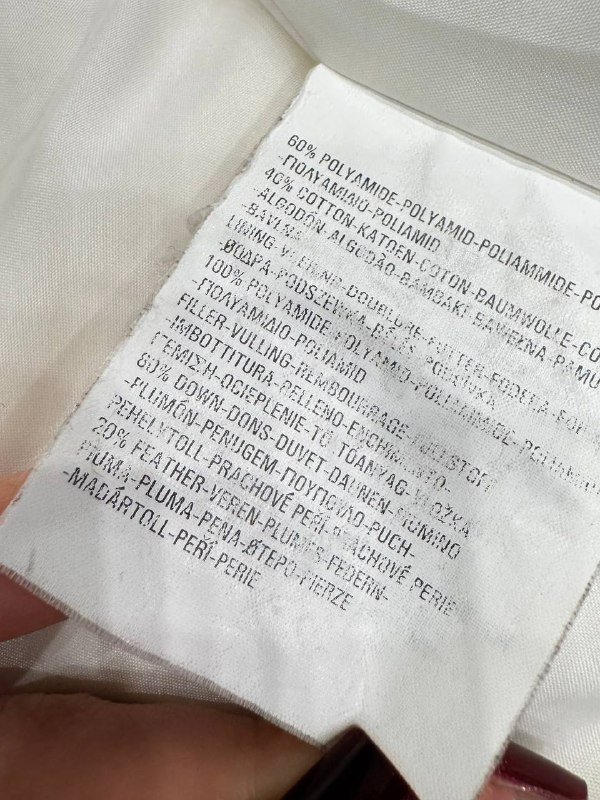 60% POLYAMIDE-POLYAMID-POLIAMMIDE-PO
-ΠΟΛΥΑΜΙΔΙΟ-POLIAMID
40% COTTON-KATOEN-COTON-BAUMWOLLE-CO
-ALGODÓN-ALGODÃO-BAMBAKI-BAWEŁNA-PAMU
-BAVLNA
LINING-VOERING-DOUBLURE-FUTTER-FODERA-FOR
-ΦΟΔΡΑ-PODSZEWKA-BÉLÉS-PODŠÍVKA
100% POLYAMIDE-POLYAMID-POLIAMMIDE-POLIAMID
-ΠΟΛΥΑΜΙΔΙΟ-POLIAMID
FILLER-VULLING-REMBOURRAGE-FÜLLSTOFF
-IMBOTTITURA-RELLENO-ENCHIMENTO-
ΓΕΜΙΣΗ-OCIEPLENIE-TÖ TOANYAG-VLOŽKA
80% DOWN-DONS-DUVET-DAUNEN-PIUMINO
-PLUMÓN-PENUGEM-ΠΟΥΠΟΥΛΟ-PUCH-
PEHELYTOLL-PRACHOVÉ PERÍ-PRACHOVÉ PERIE
20% FEATHER-VEREN-PLUMES-FEDERN-
PIUMA-PLUMA-PENA-ΦTEPO-PIERZE
-MADÁRTOLL-PEŘÍ-PERIE